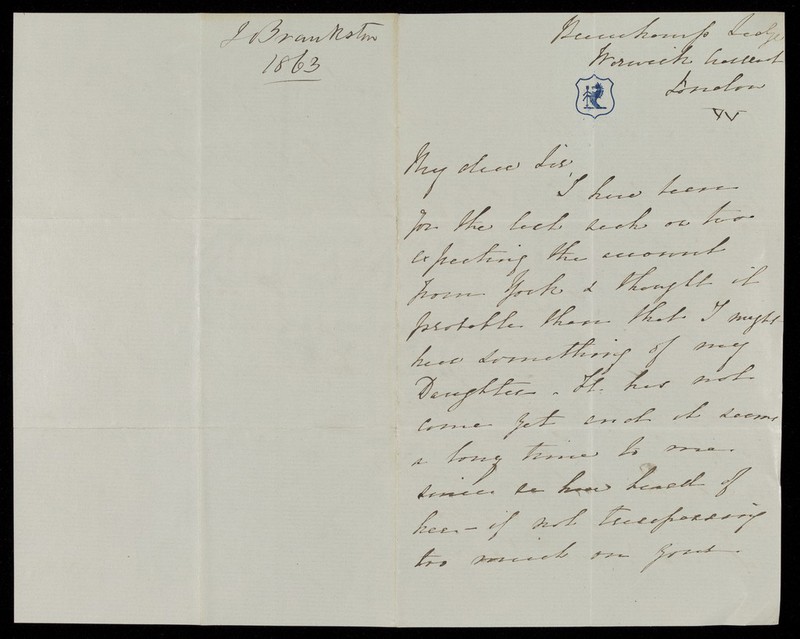 J Brankston
1863
Beauchamp Lodge
Warwick Crescent
London
W
My dear Sir
I have been
for the last week or two
expecting the account
from York & thought it
probable than that I might
hear something of my
Daughter. It has not
come yet and it seems
a long time to me
since we have heard of
her - if not trespassing
too much on your